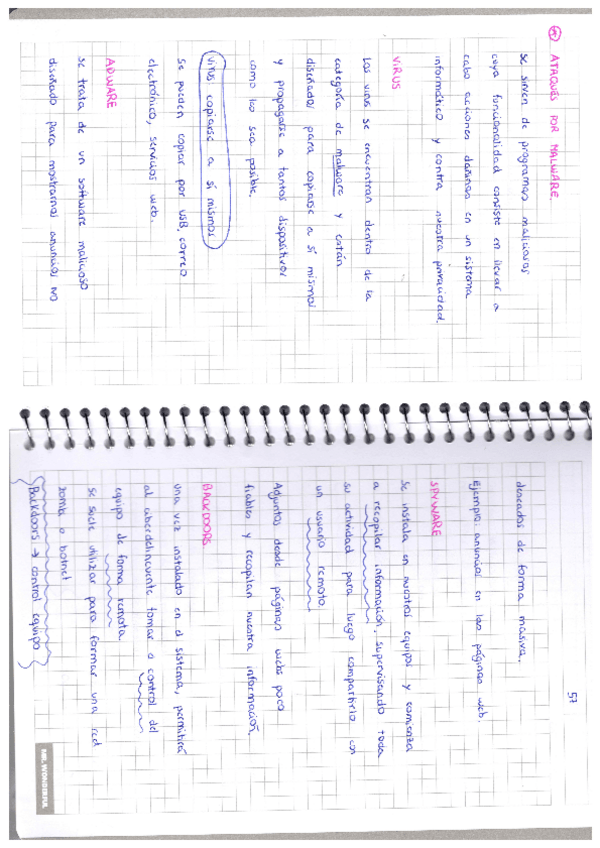 ATAQUES POR MALWARE.
se sirven de programas maliciosos
cuya funcionalidad consiste en llevar a
cabo acciones dañinas en un sistema
informático y contra nuestra privacidad.
VIRUS
Los virus se encuentran dentro de la
categoría de malware y están
diseñados para copiarse a sí mismos
y propagarse a tantos dispositivos
como les sea posible.
virus: copiarse a sí mismos
se pueden copiar por USB, correo
electrónico, servicios web.
ADWARE
se trata de un software malicioso
diseñado para mostrarnos anuncios no
57
deseados de forma masiva.
Ejemplo: anuncios en las páginas web.
SPYWARE
Se instala en nuestros equipos y comienza
a recopilar información, supervisando toda
su actividad para luego compartirlo con
un usuario remoto.
Adjuntos desde páginas webs poco
fiables y recopilan nuestra información.
BACKDOORS
una vez instalado en el sistema, permitirá
al ciberdelincuente tomar o control del
equipo de forma remota.
se suele utilizar para formar una red
zombi o botnet
Backdoors → control equipo
MR. WONDERFUL